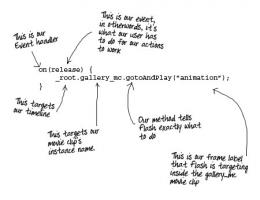 This is our
Event handler
This is our event,
in otherwords, it's
what our user has
to do for our actions
to work
on(release) {
_root.gallery_mc.gotoAndPlay("animation");
}
This targets
our timeline
This targets our
movie clip's
instance name.
Our method tells
flash exactly what
to do
This is our frame label
that flash is targeting
inside the gallery_mc
movie clip